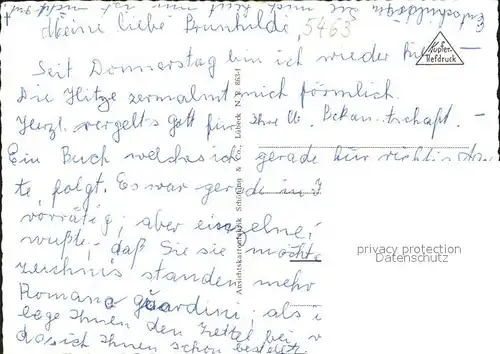 Entschuldigen Sie nicht
Meine liebe Brunhilde, 5463
Seit Donnerstag bin ich wieder
Kupfer-
Tiefdruck
Die Hitze zermalmt mich förmlich.
Herzl. vergelts Gott für Ihre lb. Bekanntschaft. -
Ein Buch welches ich gerade
te, folgt. Es war gerade
vorrätig; aber einzelne
wußte, daß Sie sie möcht
zeichnis standen mehr
Romano Guardini; als i
lege Ihnen den Zettel bei
das ich Ihnen schon bestellt
Ansichtskartenfabrik Schöning & Co., Lübeck N 8634
privacy protection
Datenschutz